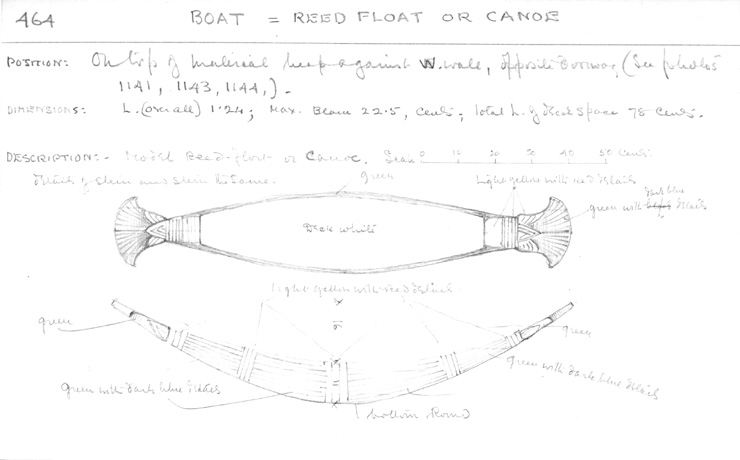 464
BOAT = REED FLOAT OR CANOE
POSITION: On top of material heap against W. wall, opposite Doorway, (See photos
1141, 1143, 1144,).
DIMENSIONS: L. (overall) 1.24; Max. Beam 22.5, Cents; Total L. of Deck Space 78 Cents.
DESCRIPTION:- Model Reed-float or Canoe. Scale 0 10 20 30 40 50 Cents.
Details of Stem and Stern the same.
green
Light yellow with red details
dark blue
green with details
Deck white
Light yellow with red details
green
green
green with dark blue details
green with dark blue details
bottom Round